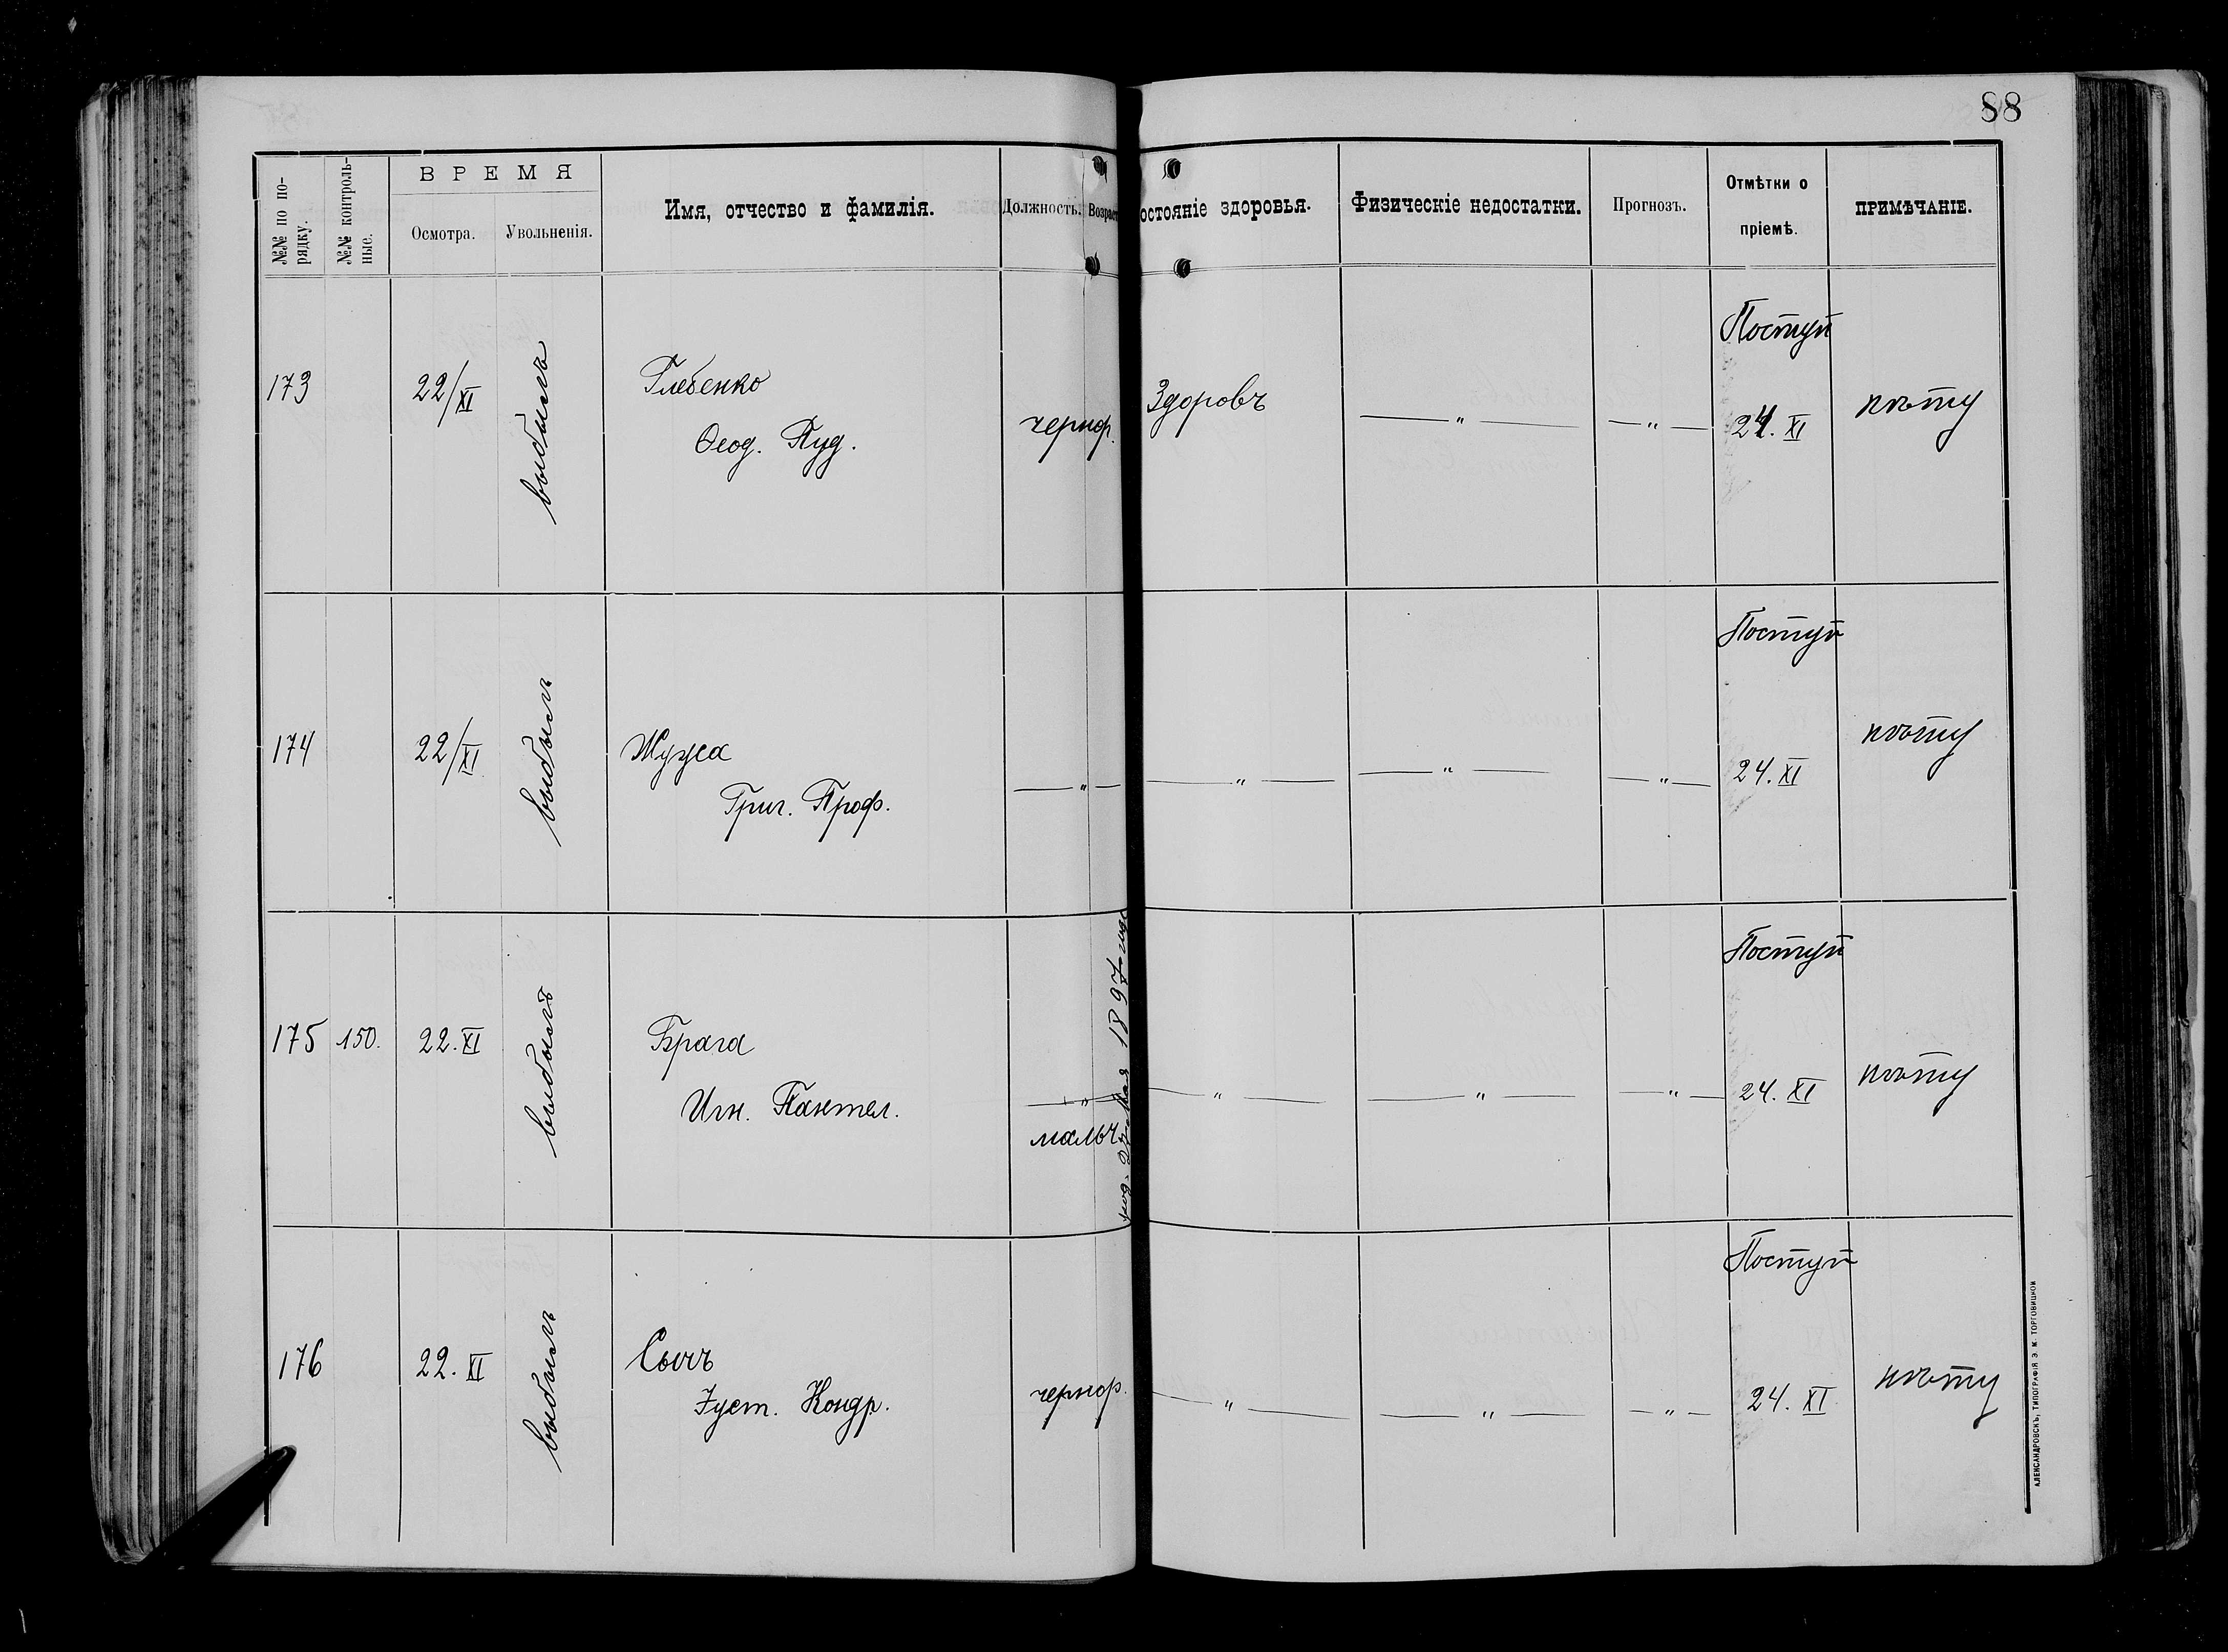 88
№№ по по-
рядку.
№№ контроль-
ные.
ВРЕМЯ
Осмотра.
Увольненія.
Имя, отчество и фамилія.
Должность.
Возраст
остояніе здоровья.
Физическіе недостатки.
Прогнозъ.
Отмѣтки о
пріемѣ.
ПРИМѢЧАНІЕ.
173
22/XI
выбылъ
Глебенко
Ѳеод. Куд.
чернор.
Здоровъ
— " —
— " —
Поступ
24. XI
174
22/XI
выбылъ
Жужа
Григ. Проф.
— " —
— " —
— " —
— " —
Поступ
24. XI
175
150.
22. XI
выбылъ
Брага
Игн. Пантел.
— " —
мальч.
1897
— " —
— " —
— " —
Поступ
24. XI
176
22. XI
выбылъ
Сычъ
Іуст. Кондр.
чернор.
— " —
— " —
— " —
Поступ
24. XI
АЛЕКСАНДРОВСКЪ, ТИПОГРАФІЯ Э. М. ТОРГОВИЦКОЙ